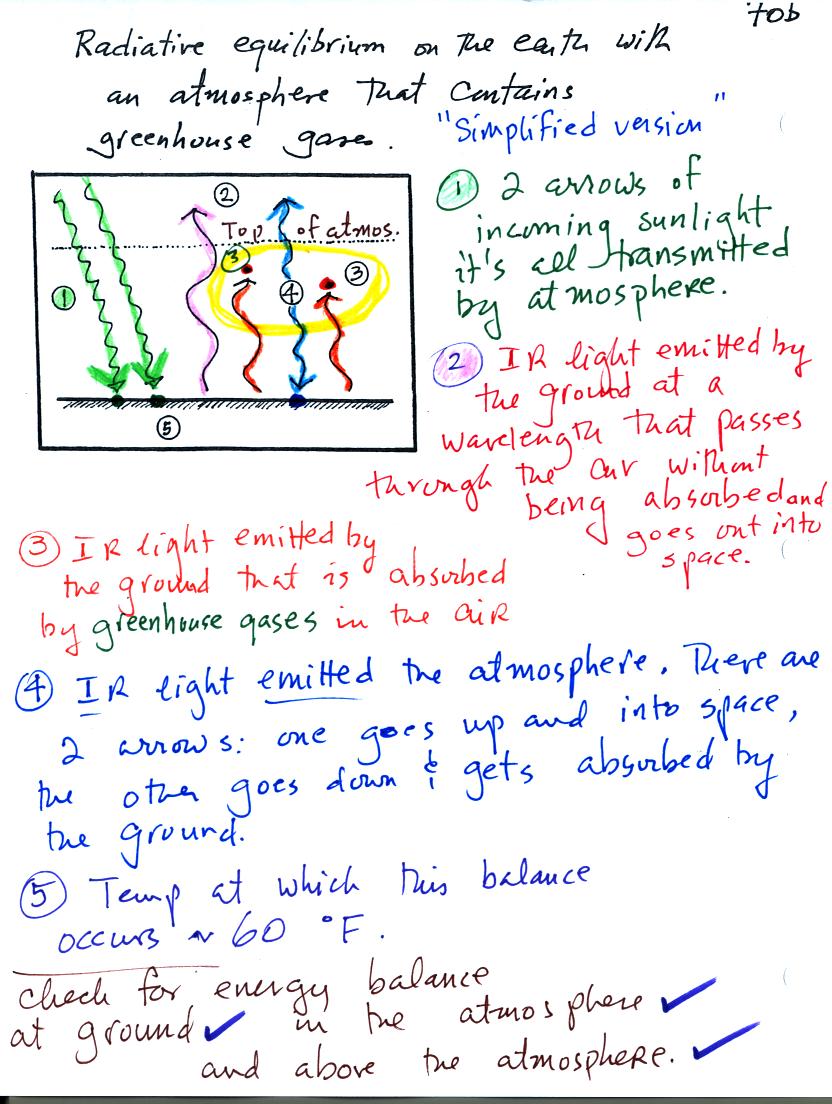 tob
Radiative equilibrium on the earth with
an atmosphere that contains
greenhouse gases.
"Simplified version"
②
Top of atmos.
③
③
①
④
⑤
① 2 arrows of
incoming sunlight
it's all transmitted
by atmosphere.
② IR light emitted by
the ground at a
wavelength that passes
through the air without
being absorbed and
goes out into
space.
③ IR light emitted by
the ground that is absorbed
by greenhouse gases in the air
④ IR light emitted the atmosphere. There are
2 arrows: one goes up and into space,
the other goes down & gets absorbed by
the ground.
⑤ Temp at which this balance
occurs ~ 60 °F.
check for energy balance
at ground ✓ in the atmosphere ✓
and above the atmosphere. ✓